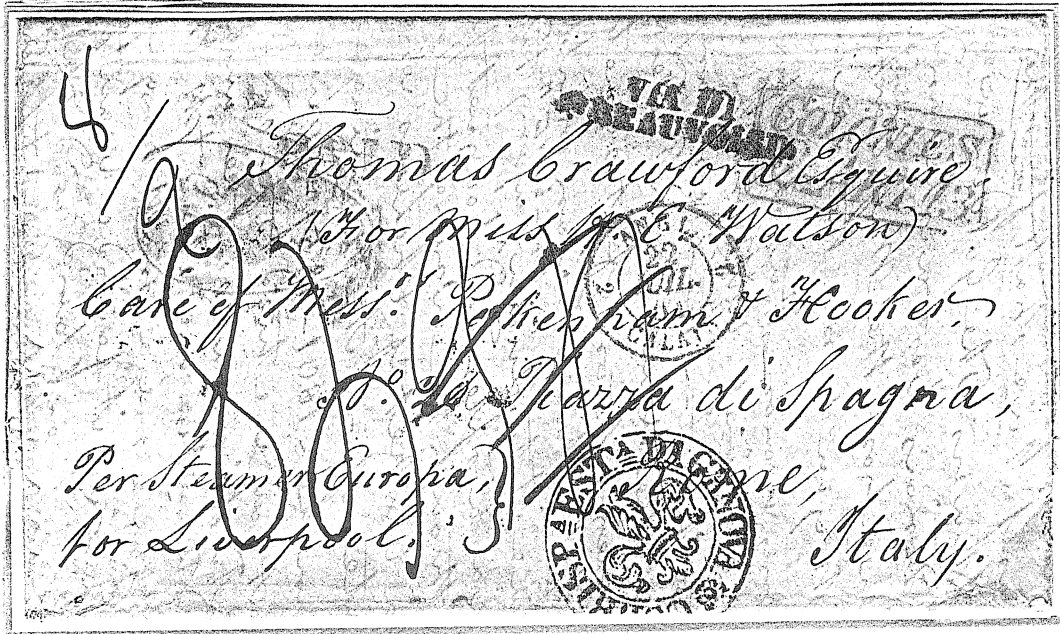 VIA DI
BEAUVOISIN
COLONIES
Thomas Crawford Esquire.
(For Miss E. Watson)
Care of Mess.rs Pakenham & Hooker,
No. Piazza di Spagna,
Per Steamer Europa,
for Liverpool.
Rome,
Italy.
ANGL.
22
CALAIS
CORRISP.A EST.A DA GENOVA